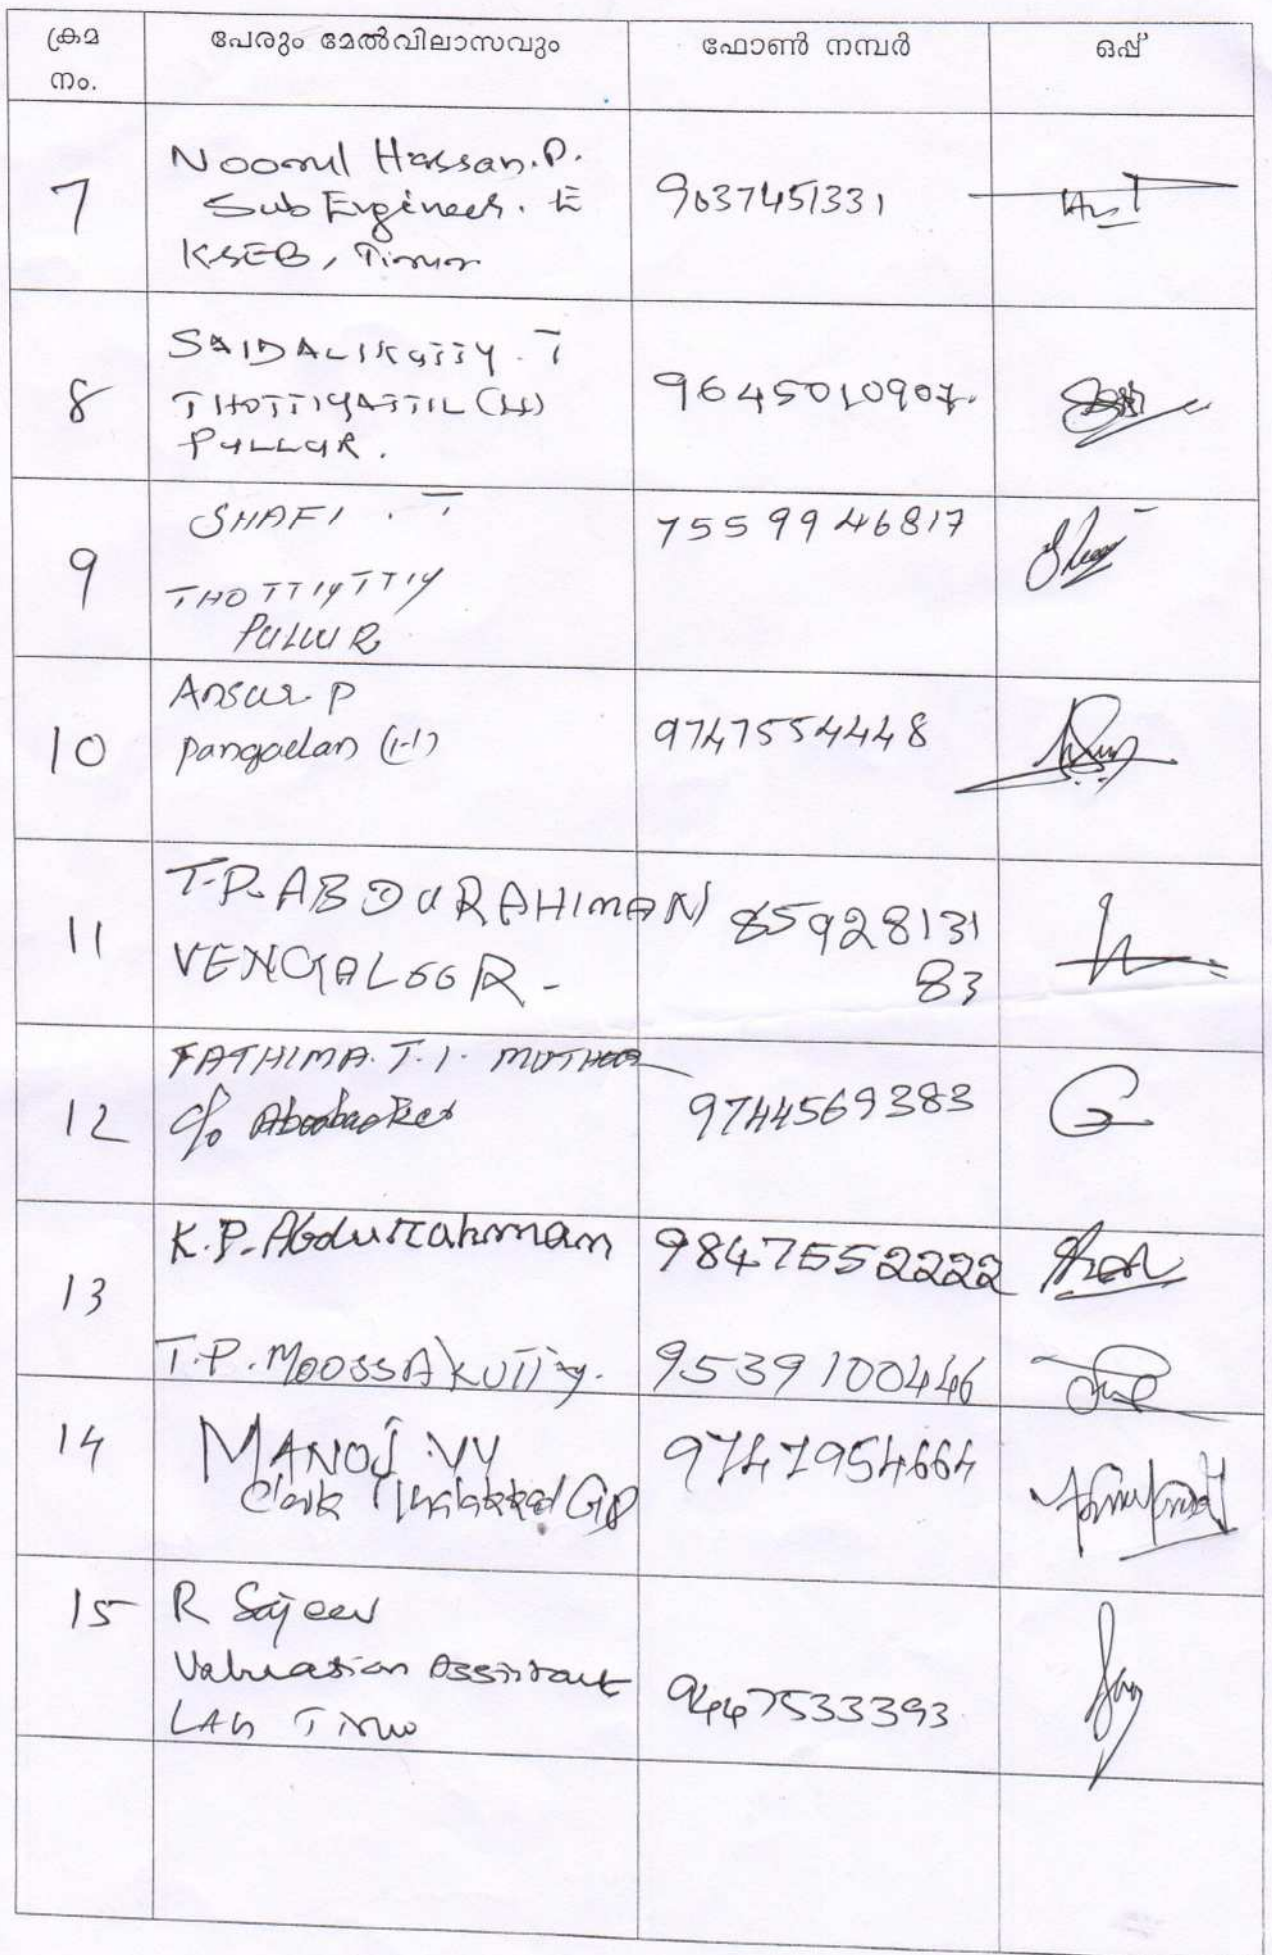 ക്രമ
നം.
പേരും മേൽവിലാസവും
ഫോൺ നമ്പർ
ഒപ്പ്
7
Noorul Hassan.P.
Sub Engineer. E
KSEB, Tirur
9037451331
8
SAIDALIKUTTY. T
THOTTIYATTIL (H)
PULLUR.
9645010907.
9
SHAFI. T
THOTTIYTTIY
PULLUR
7559946817
10
Ansar P
Pangadan (H)
9747554448
11
T.P. ABDURAHIMAN
VENGALOOR-
85928131
83
12
FATHIMA. T. I. MUTHOOR
C/o Aboobacker
9744569383
13
K.P. Abdurrahman
9847552222
T.P. MOOSSAKUTTY.
9539100446
14
MANOJ. VV
Clerk Thalakkad GP
9747954664
15
R Sajeev
Valuation Assistant
9447533393